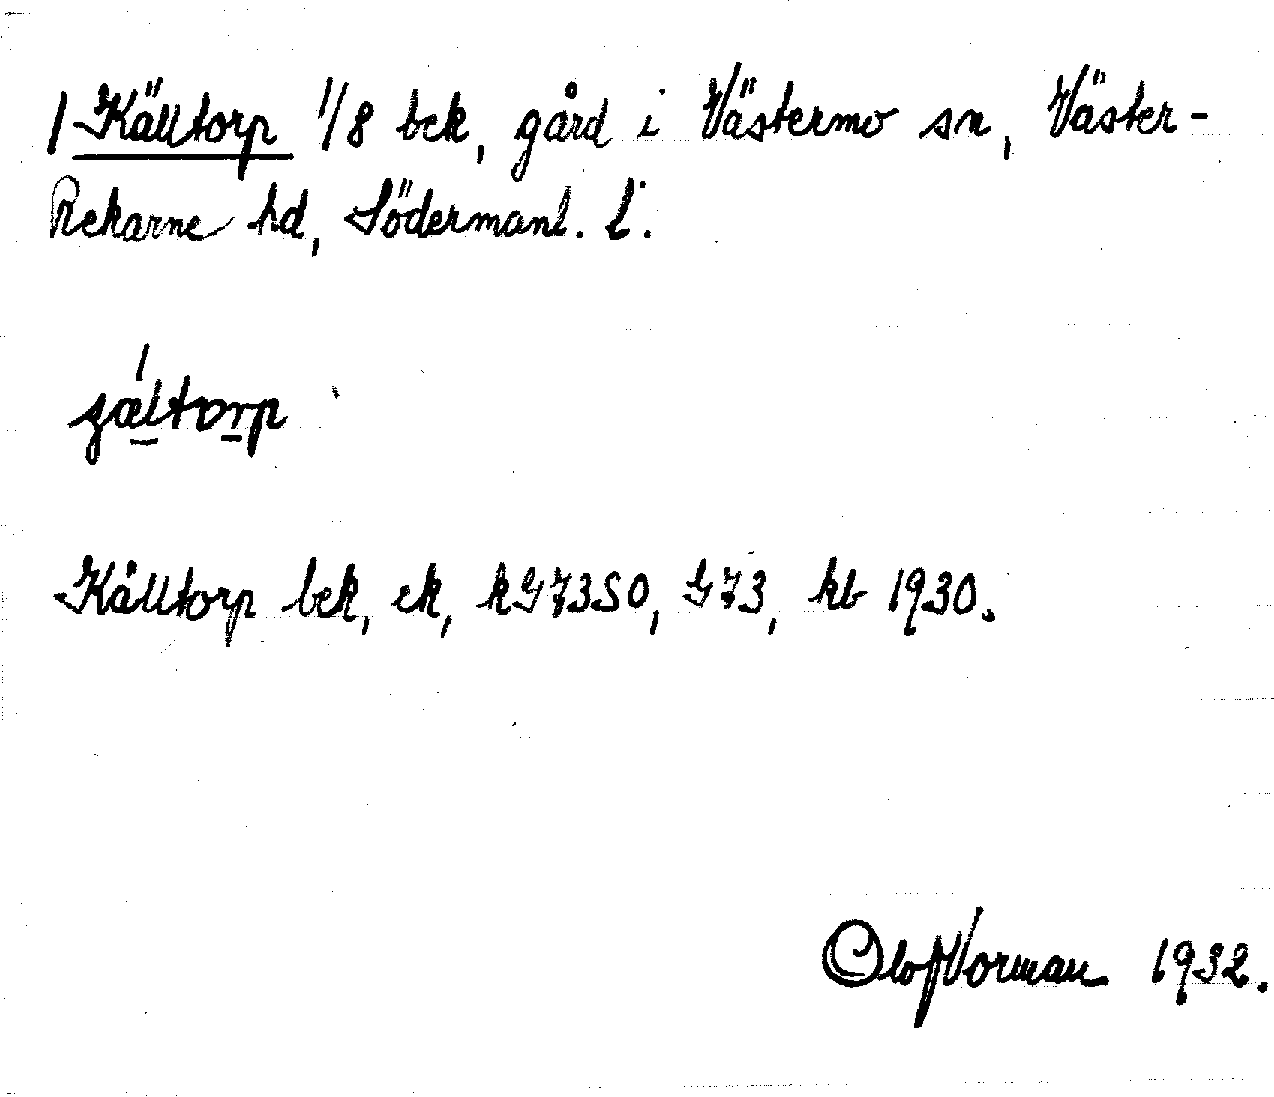 1 Källtorp 1/8 bek, gård i Västermo sn, Väster-
Rekarne hd, Södermanl. l.
Källtorp bek, ek, kG7350, G73, kb 1930.
Olof Norman 1932.